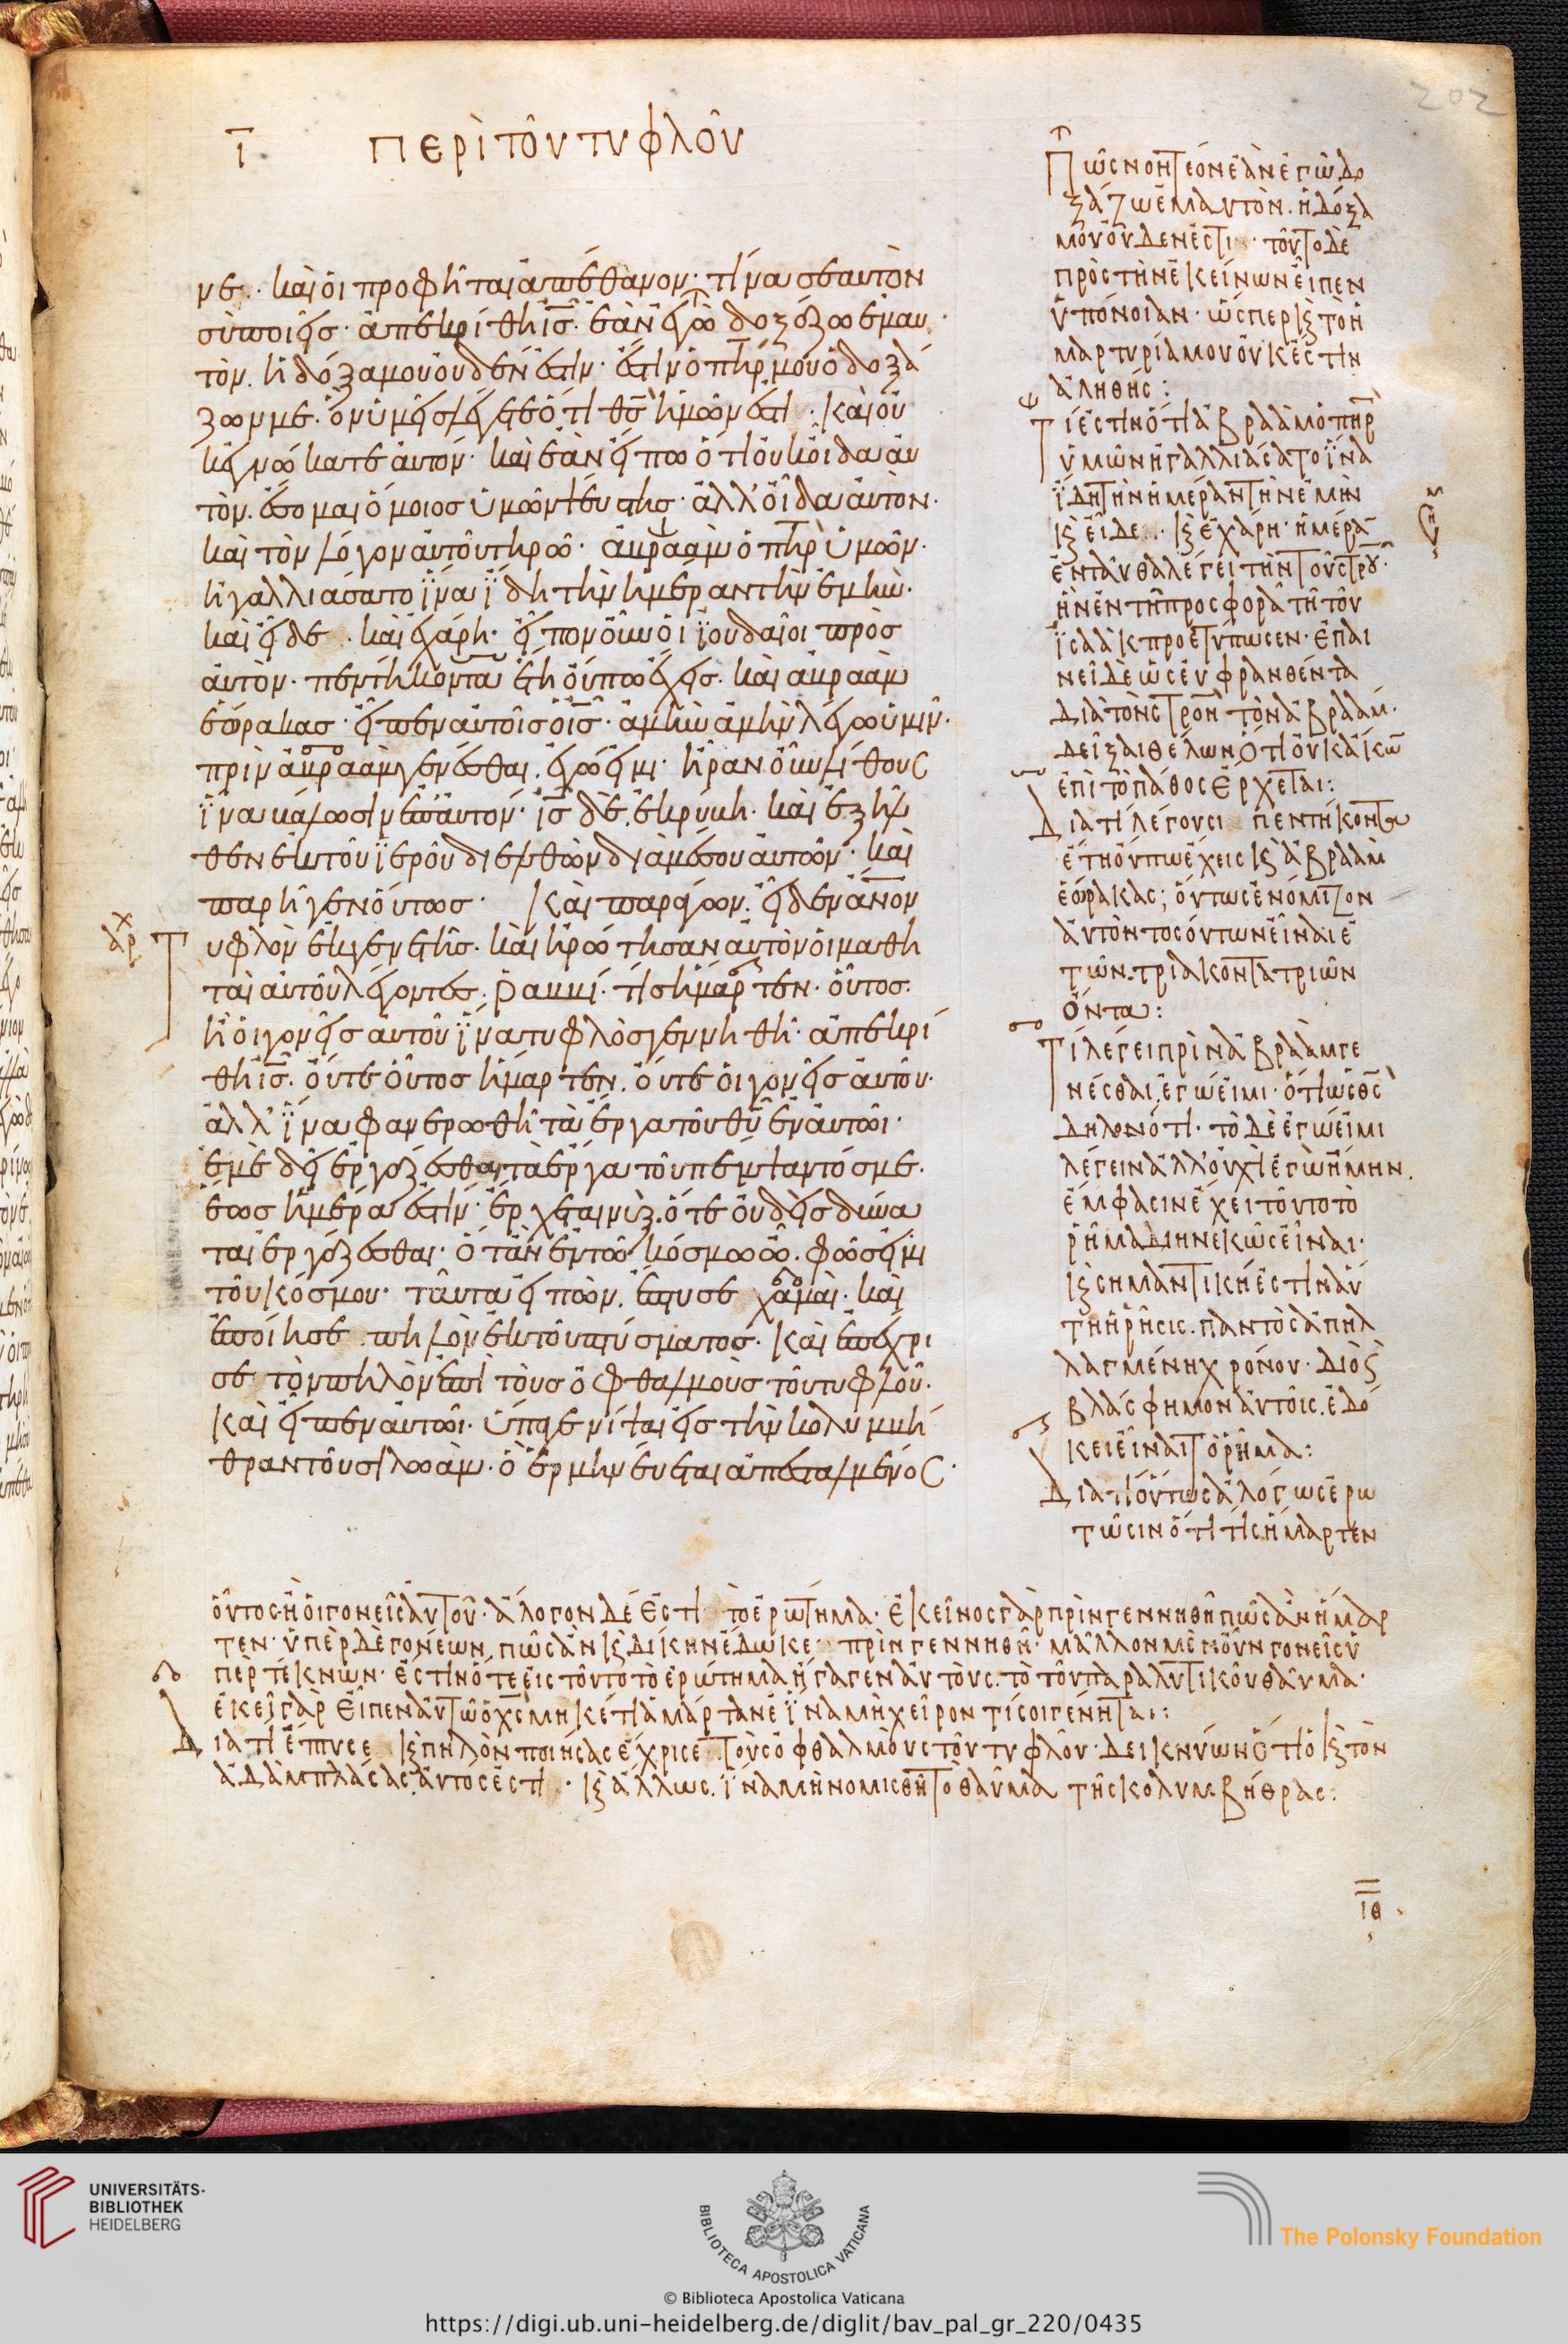 202
ι̅ ΠΕΡῚ ΤΟΥ͂ ΤΥΦΛΟΥ͂
νε· καὶ οἱ προφῆται ἀπέθανον· τίνα σεαυτὸν
σὺ ποιεῖς· ἀπεκρίθη ι̅ς̅· ἐὰν ἐγὼ δοξάζω ἐμαυ
τὸν. ἡ δόξα μου οὐδέν ἐστιν· ἔστιν ὁ π̅η̅ρ μου ὁ δοξά
ζων με· ὃν ὑμεῖς λέγετε ὅτι θ̅ς̅ ἡμῶν ἐστι· καὶ οὐ
κ ἐγνώκατε αὐτόν· καὶ ἐὰν εἴπω ὅτι οὐκ οἶδα αὐ
τὸν. ἔσομαι ὅμοιος ὑμῶν ψεύστης· ἀλλ' οἶδα αὐτὸν·
καὶ τὸν λόγον αὐτοῦ τηρῶ· ἀβραὰμ ὁ π̅η̅ρ ὑμῶν·
ἠγαλλιάσατο ἵνα ἴδη τὴν ἡμέραν τὴν ἐμήν·
καὶ εἶδε· καὶ ἐχάρη· εἶπον οὖν οἱ ἰουδαῖοι πρὸς
αὐτὸν· πεντήκοντα ἔτη οὔπω ἔχεις· καὶ ἀβραὰμ
ἑώρακας· εἶπεν αὐτοῖς ὁ ι̅ς̅· ἀμὴν ἀμὴν λέγω ὑμῖν·
πρὶν ἀβραὰμ γενέσθαι. ἐγώ εἰμι· ἦραν οὖν λίθους
ἵνα βάλωσιν ἐπ' αὐτόν· ι̅ς̅ δὲ ἐκρύβη· καὶ ἐξῆλ
θεν ἐκ τοῦ ἱεροῦ διελθὼν διὰ μέσου αὐτῶν· καὶ
παρῆγεν οὕτως· Καὶ παράγων. εἶδεν α̅ν̅ο̅ν
αρχ
Τυφλὸν ἐκ γενετῆς· καὶ ἠρώτησαν αὐτὸν οἱ μαθη
ταὶ αὐτοῦ λέγοντες· ῥαββί· τίς ἥμαρτεν· οὗτος·
ἢ οἱ γονεῖς αὐτοῦ ἵνα τυφλὸς γεννηθῆ· ἀπεκρί
θη ι̅ς̅· οὔτε οὗτος ἥμαρτεν. οὔτε οἱ γονεῖς αὐτοῦ·
ἀλλ' ἵνα φανερωθῆ τὰ ἔργα τοῦ θ̅υ̅ ἐν αὐτῶι·
ἐμὲ δεῖ ἐργάζεσθαι τὰ ἔργα τοῦ πέμψαντός με·
ἕως ἡμέρα ἐστίν· ἔρχεται νὺξ. ὅτε οὐδεὶς δύνα
ται ἐργάζεσθαι· ὅταν ἐν τῶ κόσμω ὦ· φῶς εἰμι
τοῦ κόσμου· ταῦτα εἰπὼν. ἔπτυσε χαμαί· καὶ
ἐποίησε πηλὸν ἐκ τοῦ πτύσματος· καὶ ἐπέχρι
σε τὸν πηλὸν ἐπὶ τοὺς ὀφθαλμοὺς τοῦ τυφλοῦ·
Καὶ εἶπεν αὐτῶι· ὕπαγε νίψαι εἰς τὴν κολυμβή
θραν τοῦ σιλωάμ· ὃ ἑρμηνεύεται ἀπεσταλμένος·
Πῶς νοητέον ἐὰν ἐγὼ δο
ξάζω ἐμαυτὸν. ἡ δόξα
μου οὐδέν ἐστι· τοῦτο δὲ
πρὸς τὴν ἐκείνων εἶπεν
ὑπόνοιαν· ὥσπερ κ̀ τὸ ἡ
μαρτυρία μου οὐκ ἔστιν
ἀληθής:
Τί ἐστιν ὅτι ἀβραὰμ ὁ π̅η̅ρ
ὑμῶν ἠγαλλιάσατο ἵνα
ἴδη τὴν ἡμέραν τὴν ἐμὴν
κ̀ εἶδε· κ̀ ἐχάρη· ἡμέρα̅
ἐνταῦθα λέγει τὴν τοῦ σ̅τ̅ρου·
ἣν ἐν τῆ προσφορᾶ τῆ τοῦ
ἰσαὰκ προετύπωσεν· ἐπαι
νεῖ δὲ ὡς εὐφρανθέντα
διὰ τὸν σ̅τ̅ρο̅ν τὸν ἀβραάμ·
δεῖξαι θέλων ὅτι οὐκ ἄκω̅
ἐπὶ τὸ πάθος ἔρχεται:
Διατί λέγουσι πεντήκοντα
ἔτη οὔπω ἔχεις κ̀ ἀβραὰμ
ἑώρακας; οὕτως ἐνόμιζον
αὐτὸν τοσούτων εἶναι ἐ
τῶν. τριακοντατριῶν
ὄντα:
Τί λέγει πρὶν ἀβραὰμ γε
νέσθαι, ἐγώ εἰμι· ὅτι ὡς θ̅ς̅
δηλονότι· τὸ δὲ ἐγώ εἰμι
λέγειν ἀλλ' οὐχὶ ἐγὼ ἤμην.
ἔμφασιν ἔχει τοῦτο τὸ
ῥῆμα διηνεκῶς εἶναι·
κ̀ σημαντική ἐστιν αὐ
τη ἡ ῥῆσις. παντὸς ἀπηλ
λαγμένη χρόνου· διὸ κ̀
βλάσφημον αὐτοῖς. ἐδό
κει εἶναι τὸ ῥῆμα:
Διατί οὕτως ἀλόγως ἐρω
τῶσιν ὅτι τίς ἥμαρτεν
οὗτος· ἢ οἱ γονεῖς αὐτοῦ· ἄλογον δέ ἐστι τὸ ἐρώτημα· ἐκεῖνος γὰρ πρὶν γεννηθῆ πῶς ἂν ἥμαρ
τεν· ὑπὲρ δὲ γονέων πῶς ἂν κ̀ δίκην ἔδωκε πρὶν γεννηθῆ· μᾶλλον μὲν οὖν γονεῖς ὑ
πὲρ τέκνων· ἔστιν ὅτε εἰς τοῦτο τὸ ἐρώτημα ἤγαγεν αὐτοὺς. τὸ τοῦ παραλυτικοῦ θαῦμα·
ἐκεῖ γὰρ εἶπεν αὐτῶ ὁ χ̅ς̅ μηκέτι ἁμάρτανε ἵνα μὴ χεῖρόν τί σοι γένηται:
Διατί ἔπτυσε κ̀ πηλὸν ποιήσας ἔχρισε τοὺς ὀφθαλμοὺς τοῦ τυφλοῦ· δεικνύων ὅτι ὁ κ̀ τὸν
ἀδὰμ πλάσας αὐτός ἐστι· κ̀ ἄλλως. ἵνα μὴ νομισθῆ τὸ θαῦμα τῆς κολυμβήθρας:
ιθ
UNIVERSITÄTS-
BIBLIOTHEK
HEIDELBERG
BIBLIOTECA APOSTOLICA VATICANA
The Polonsky Foundation
© Biblioteca Apostolica Vaticana
https://digi.ub.uni-heidelberg.de/diglit/bav_pal_gr_220/0435